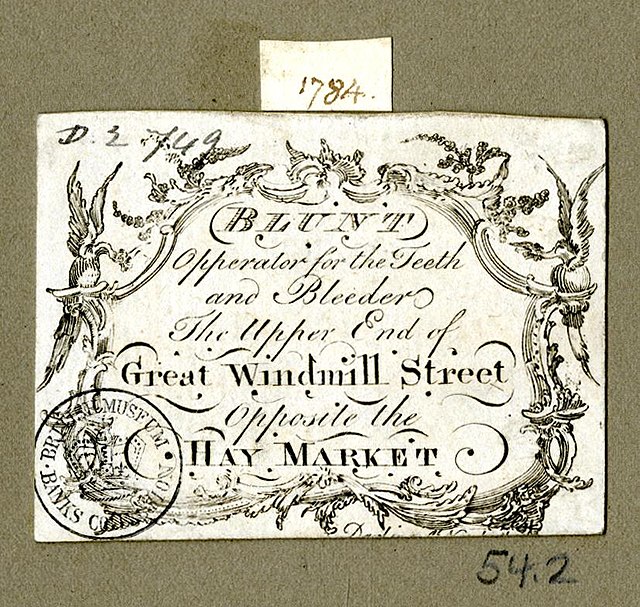 1784.
D.2 749
BLUNT
Opperator for the Teeth
and Bleeder
The Upper End of
Great Windmill Street
Opposite the
HAY MARKET
BRITISH MUSEUM
BANKS COLLECTION
54.2